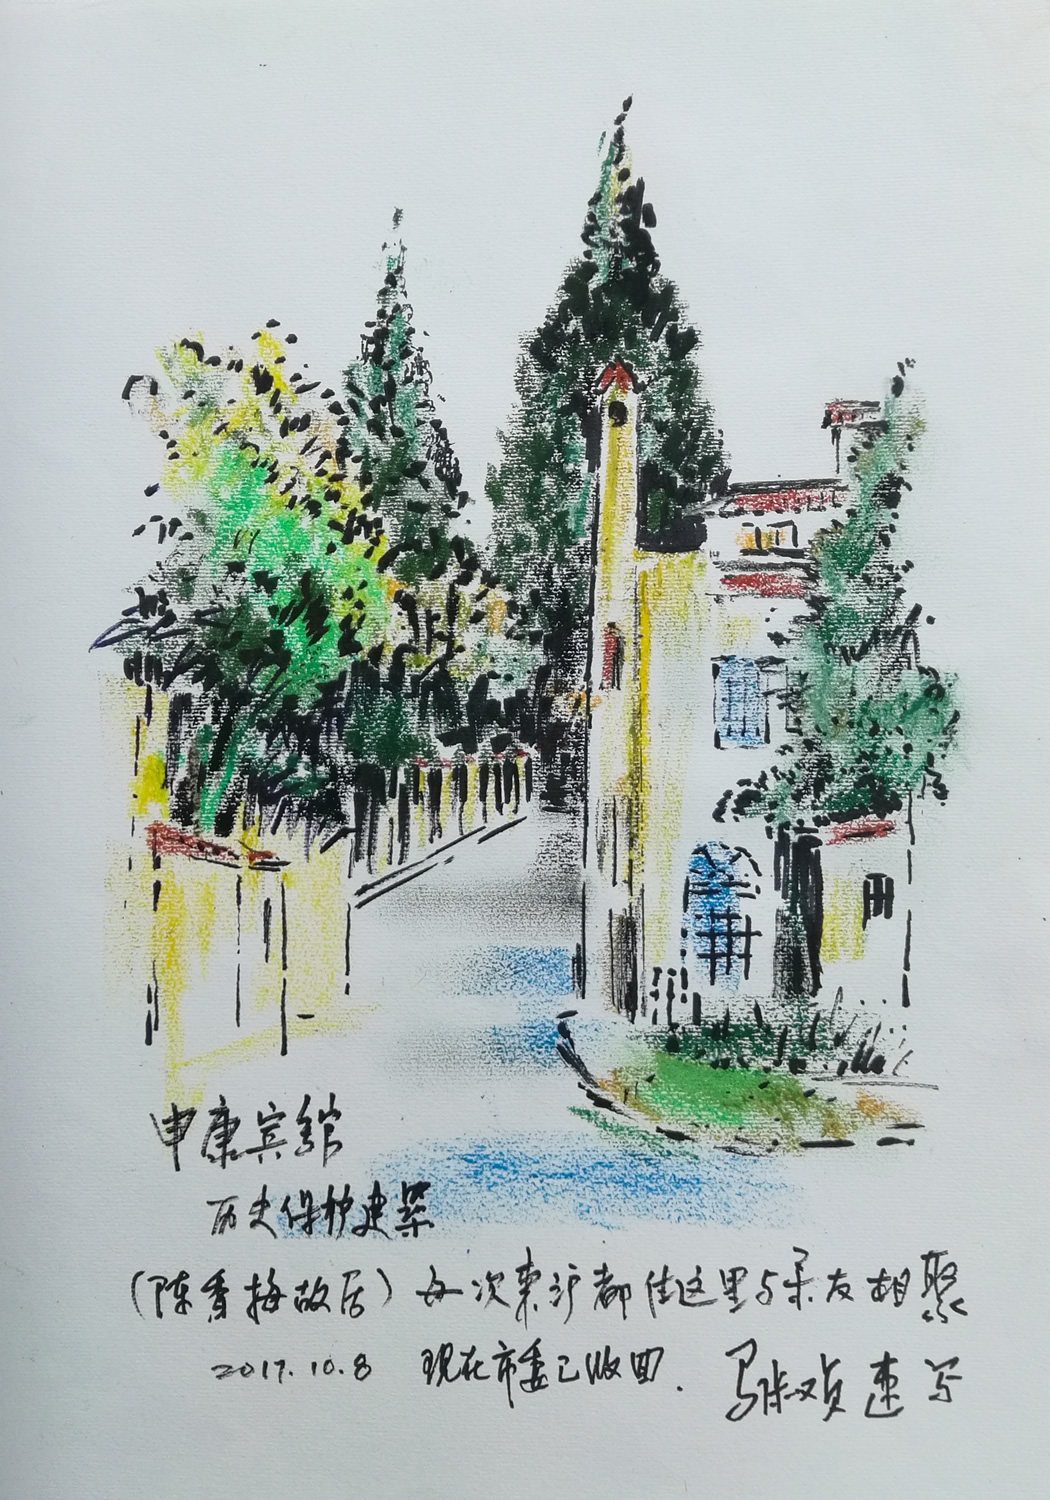 申康宾馆
历史保护建筑
(陈香梅故居) 每次来沪都住这里与亲友相聚
2017.10.8 现在市委已收回.
马淑贞速写